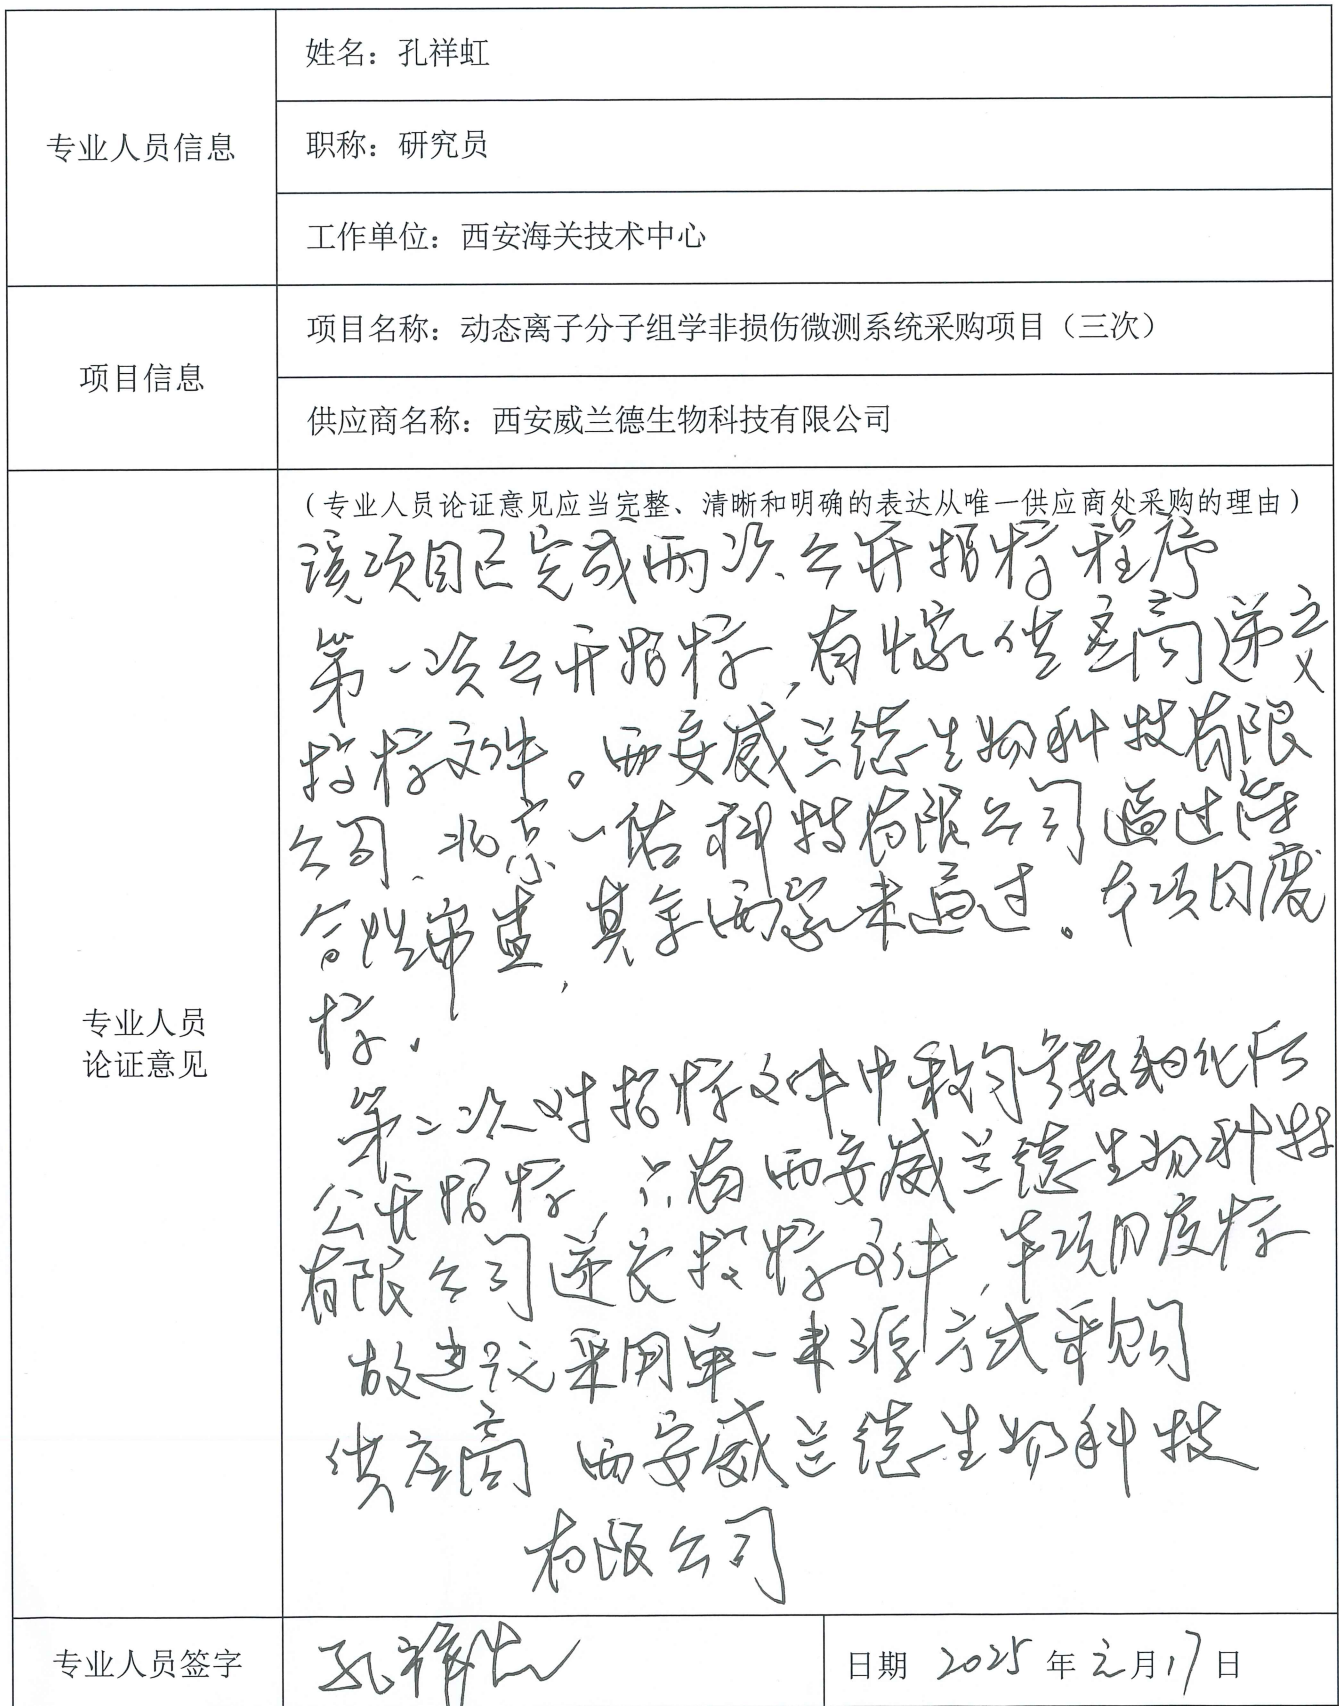 专业人员信息
姓名：孔祥虹
职称：研究员
工作单位：西安海关技术中心
项目信息
项目名称：动态离子分子组学非损伤微测系统采购项目（三次）
供应商名称：西安威兰德生物科技有限公司
专业人员
论证意见
（专业人员论证意见应当完整、清晰和明确的表达从唯一供应商处采购的理由）
该项目已完成两次公开招标程序
第一次公开招标，有 家供应商递交
投标文件。西安威兰德生物科技有限
公司、北京一 科技有限公司通过符
合性审查，其余两家未通过。本项目废
标。
第二次对招标文件中 参数细化后
公开招标，只有西安威兰德生物科技
有限公司递交投标文件，本项目废标
故建议采用单一来源方式采购
供应商 西安威兰德生物科技
有限公司
专业人员签字
孔祥虹
日期 2025 年 元 月 17 日